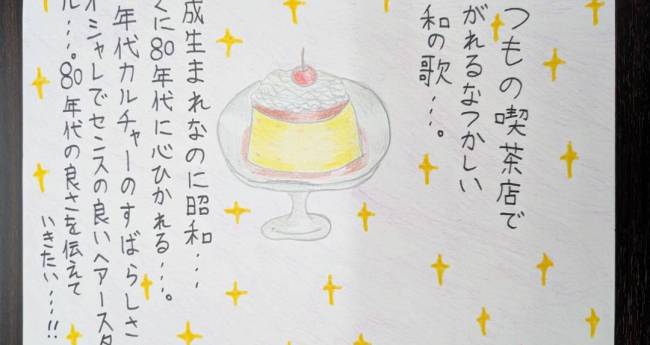 つもの喫茶店で
がれるなつかしい
和の歌…。
成生まれなのに昭和…
くに80年代に心ひかれる…。
年代カルチャーのすばらしさ
オシャレでセンスの良いヘアースタ
ル…。80年代の良さを伝えて
いきたい…!!